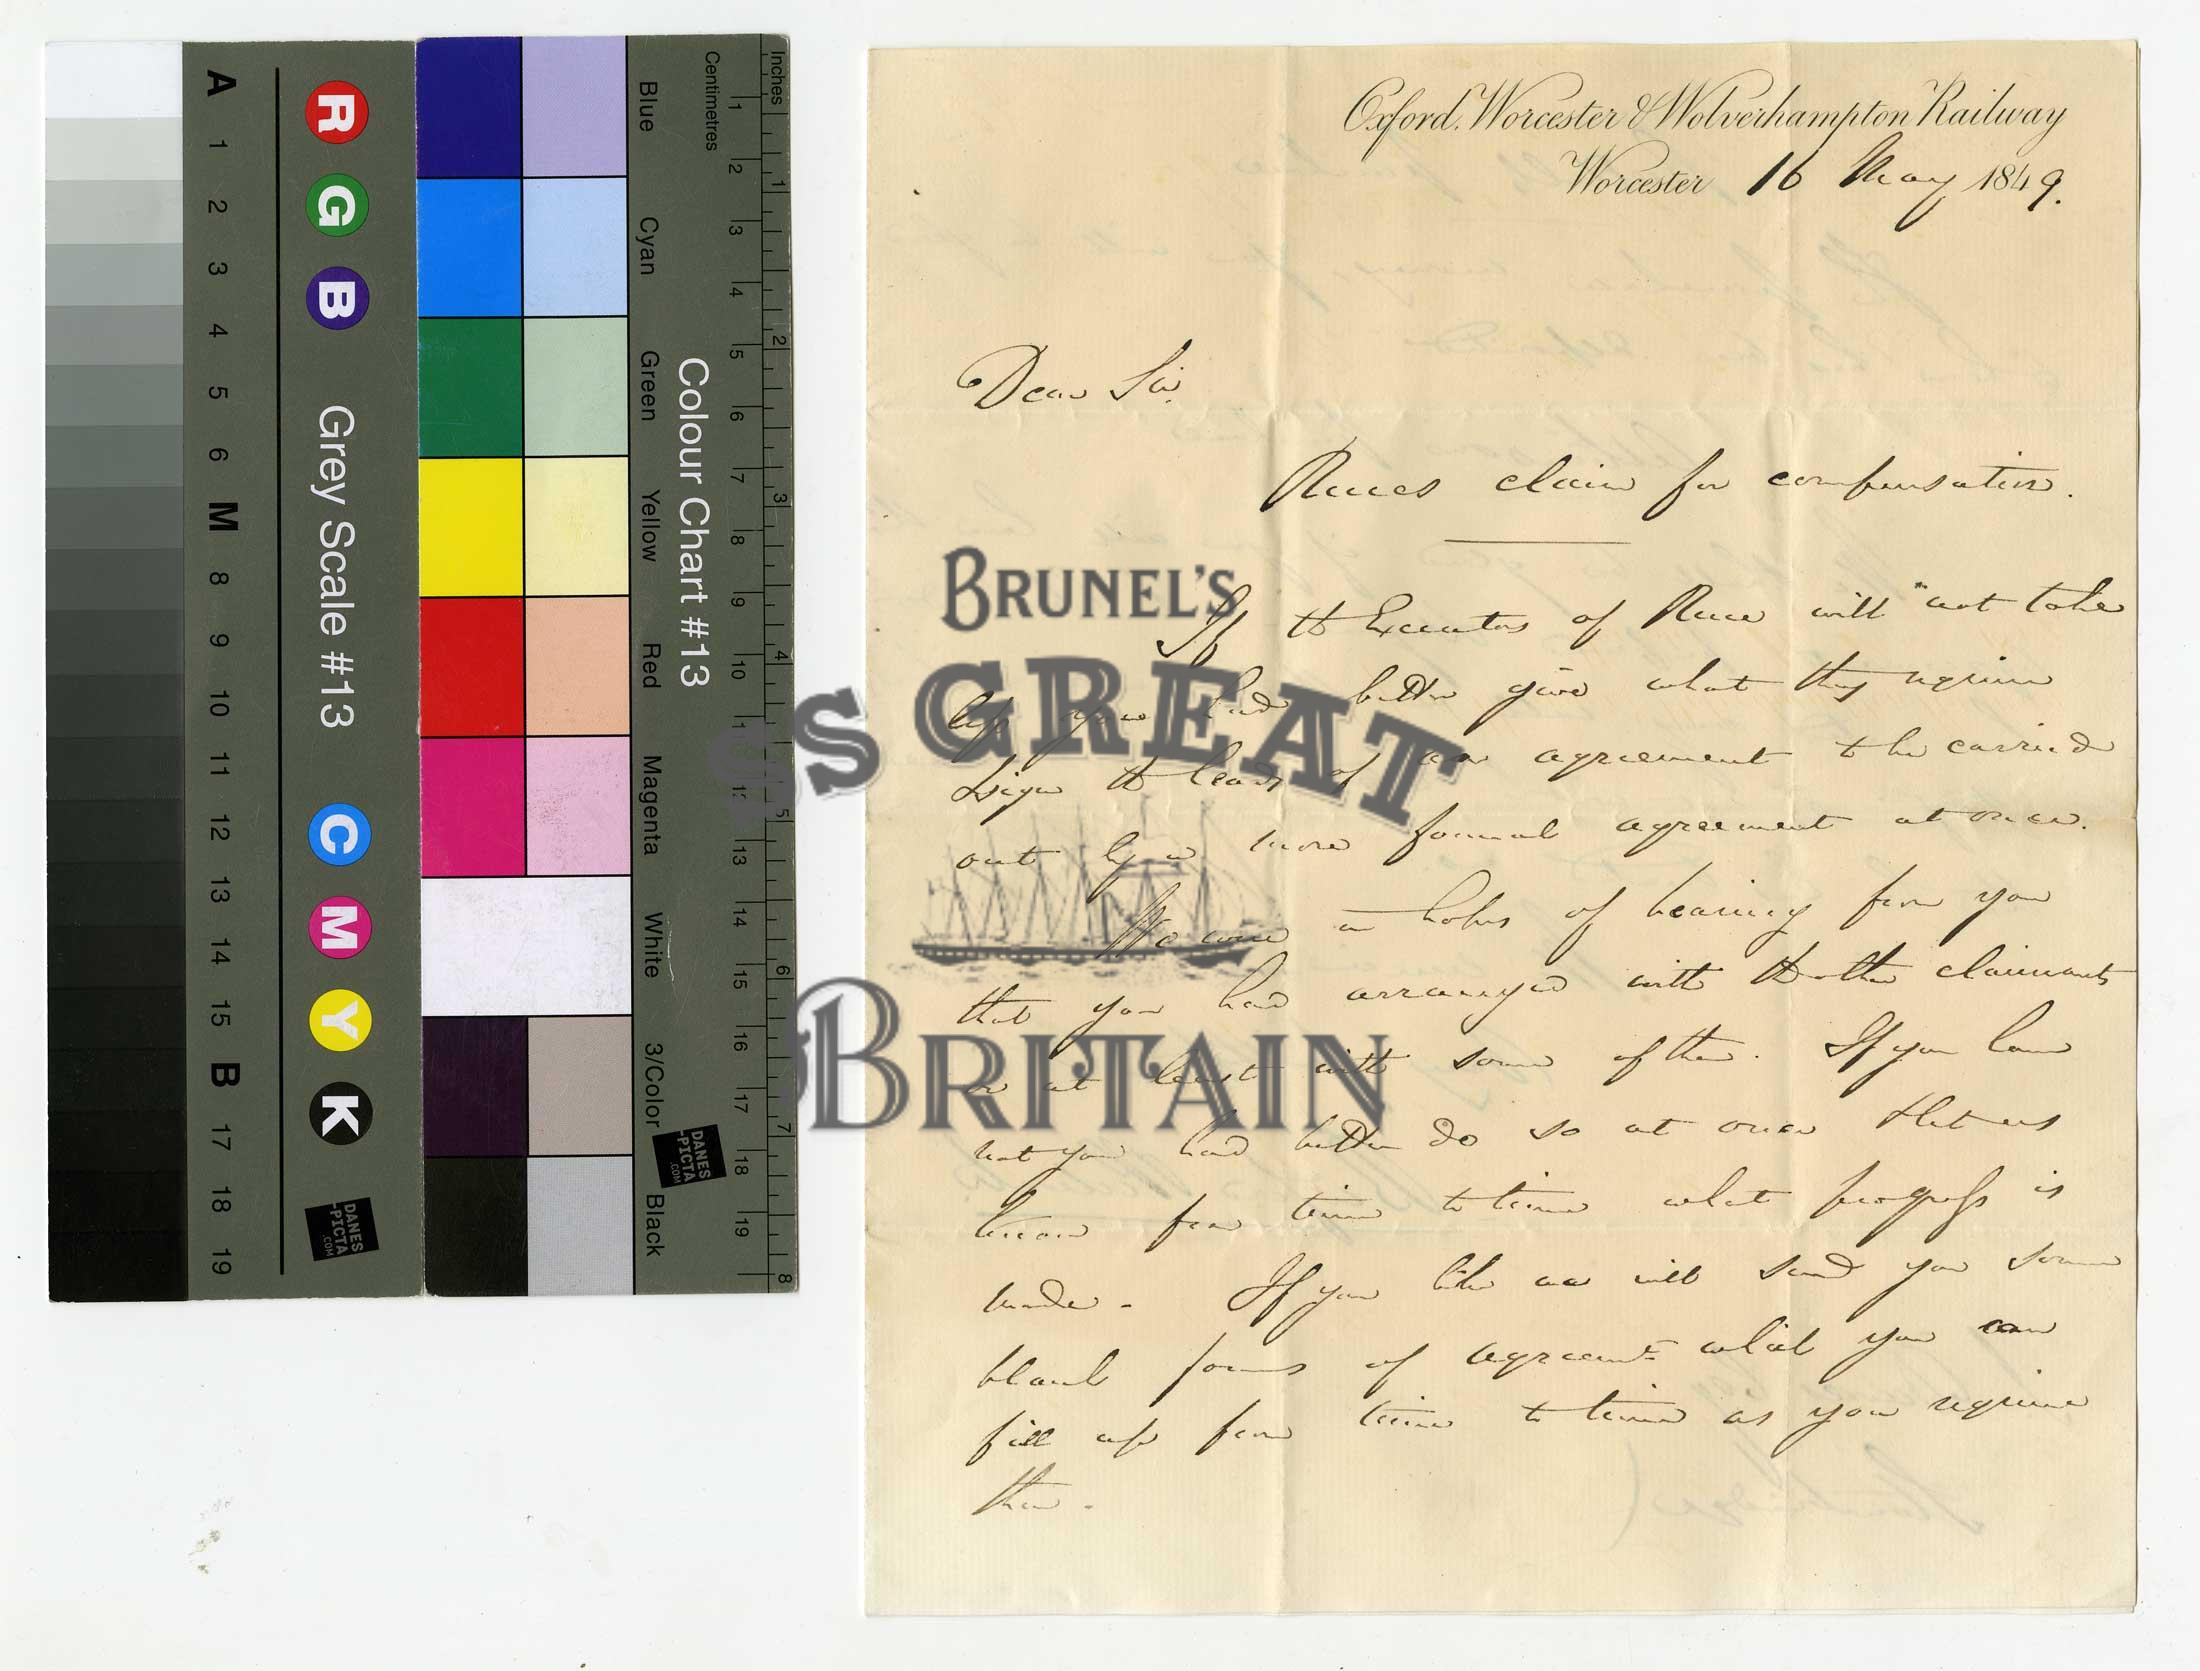 Oxford, Worcester & Wolverhampton Railway
Worcester 16 May 1849.
Dear Sir.
claim for compensation.
If the Executors of will not take
less you had better give what they require
Sign the heads of an agreement to be carried
out by a more formal agreement at once.
We were in hopes of hearing from you
that you had arranged with the other claimants
or at least with some of them. If you have
not you had better do so at once & let us
know from time to time what progress is
made. If you like we will send you some
blank forms of agreemt which you can
fill up from time to time as you require
them.
BRUNEL'S
SS GREAT
BRITAIN
A 1 2 3 4 5 6 M 8 9 10 11 12 13 14 15 B 17 18 19
R G B Grey Scale #13 C M Y K
DANES
-PICTA
.COM
Blue Cyan Green Yellow Red Magenta White 3/Color Black
Colour Chart #13
DANES
-PICTA
.COM
Centimetres 1 2 3 4 5 6 7 8 9 10 1 12 13 14 15 16 17 18 19
Inches 1 2 3 4 5 6 7 8